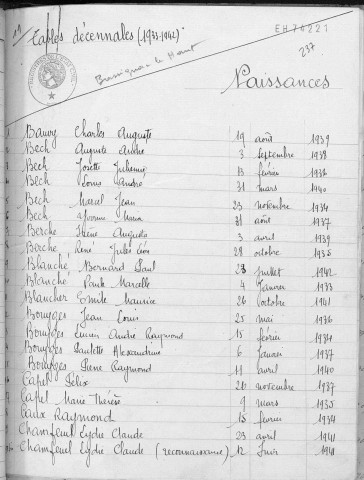 Tables décennales (1933-1942)
EH 74221
237
Naissances
Bauvy Charles Auguste 19 août 1939
Bech Auguste André 3 septembre 1938
Bech Josette Julienne 13 février 1936
Bech Louis André 31 mars 1940
Bech Marcel Jean 23 novembre 1934
Bech Yvonne 31 août 1937
Berche Augusta 3 avril 1939
Berche René Jules Léon 28 octobre 1935
Blanché Bernard Paul 23 juillet 1942
Blanché Paule Marcelle 4 Janvier 1933
Blancher Emile Maurice 26 octobre 1941
Bourges Jean Louis 25 mai 1936
Bourges Lucien André Raymond 15 février 1934
Bourges Paulette Alexandrine 6 janvier 1937
Bourges Pierre Raymond 11 avril 1940
Capel Félix 21 novembre 1937
Capel Marie Thérèse 9 mars 1935
Caux Raymond 15 février 1934
Chamfeuil Lydie Claude 23 avril 1941
Chamfeuil Lydie Claude (reconnaissance) 12 Juin 1941